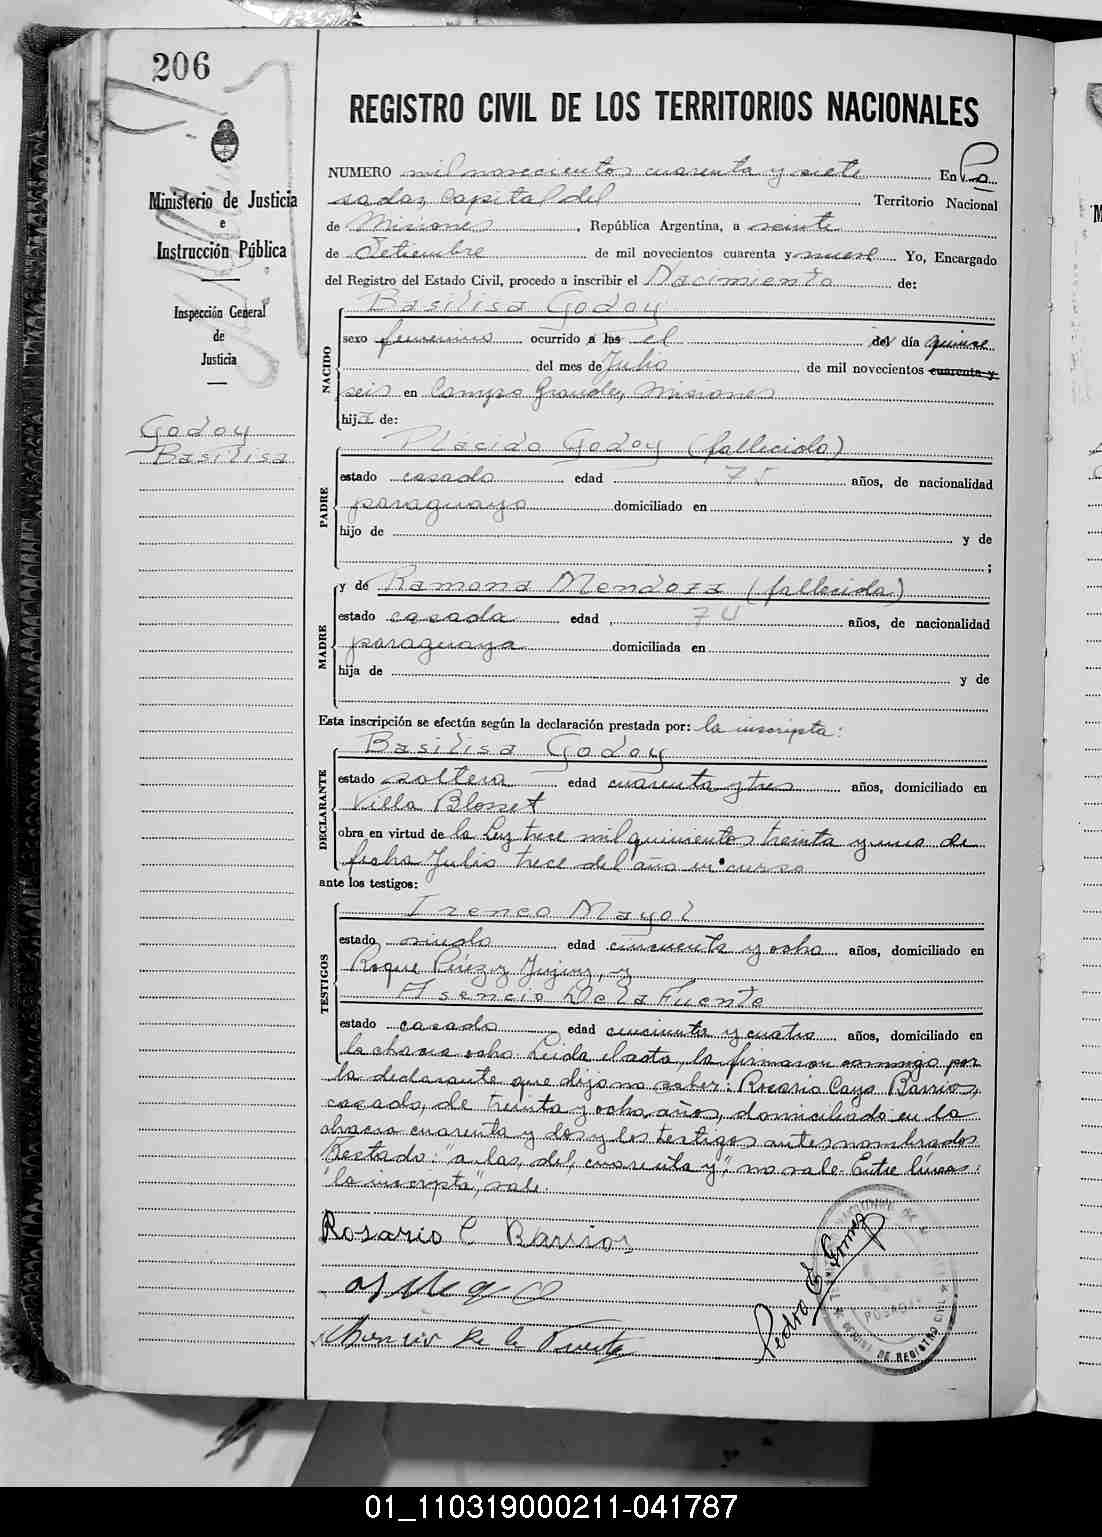 206
Ministerio de Justicia
e
Instrucción Pública
Inspección General
de
Justicia
Godoy
Basilisa
REGISTRO CIVIL DE LOS TERRITORIOS NACIONALES
NUMERO mil novecientos cuarenta y siete En Po
sadas, Capital del Territorio Nacional
de Misiones, República Argentina, a veinte
de Setiembre de mil novecientos cuarenta y nueve Yo, Encargado
del Registro del Estado Civil, procedo a inscribir el Nacimiento de:
Basilisa Godoy
NACIDO
sexo femenino ocurrido a las el del día quince
del mes de Julio de mil novecientos cuarenta y
seis en Campo Grande, Misiones
hija de:
PADRE
Plácido Godoy (fallecido)
estado casado edad 75 años, de nacionalidad
paraguayo domiciliado en
hijo de y de
;
MADRE
y de Ramona Mendoza (fallecida)
estado casada edad 74 años, de nacionalidad
paraguaya domiciliada en
hija de y de
Esta inscripción se efectúa según la declaración prestada por: la inscripta:
DECLARANTE
Basilisa Godoy
estado soltera edad cuarenta y tres años, domiciliado en
Villa Blosset
obra en virtud de la Ley trece mil quinientos treinta y uno de
fecha Julio trece del año en curso
ante los testigos:
TESTIGOS
Ireneo Mayol
estado viudo edad cincuenta y ocho años, domiciliado en
Roque Pérez y Jujuy, y
Asencio De la Fuente
estado casado edad cincuenta y cuatro años, domiciliado en
la chacra ocho. Leida el acta, la firmaron conmigo por
la declarante que dijo no saber: Rosario Caya Barrios,
casado, de treinta y ocho años, domiciliado en la
chacra cuarenta y dos y los testigos antes nombrados
Testado: "a las, del, cuarenta y", no vale. Entre líneas:
"la inscripta", vale.
Rosario C Barrios
Asencio De la Fuente
Pedro E Gomez
POSADAS
REGISTRO CIVIL
01_110319000211-041787